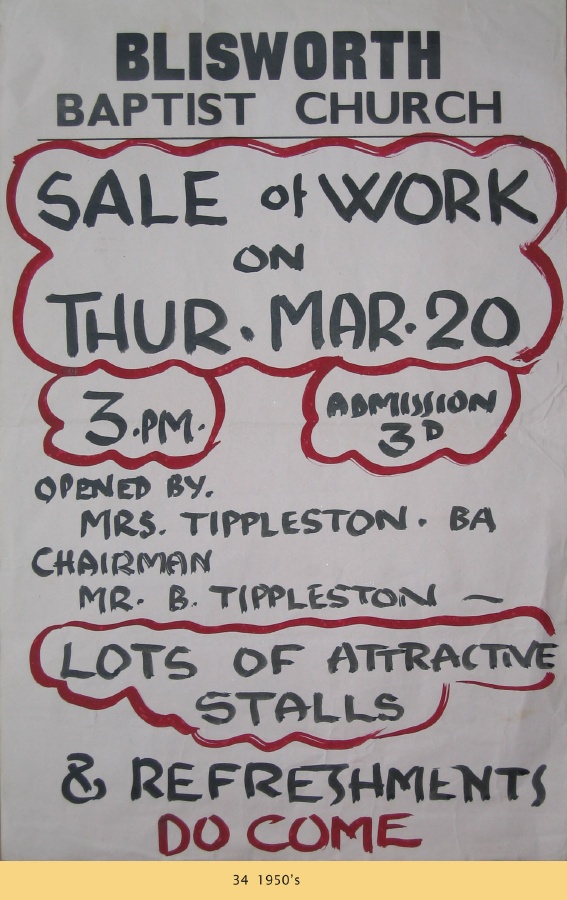 BLISWORTH
BAPTIST CHURCH
SALE of WORK
ON
THUR. MAR. 20
3.PM.
ADMISSION
3D
OPENED BY.
MRS. TIPPLESTON. BA
CHAIRMAN
MR. B. TIPPLESTON —
LOTS OF ATTRACTIVE
STALLS
& REFRESHMENTS
DO COME
34 1950's